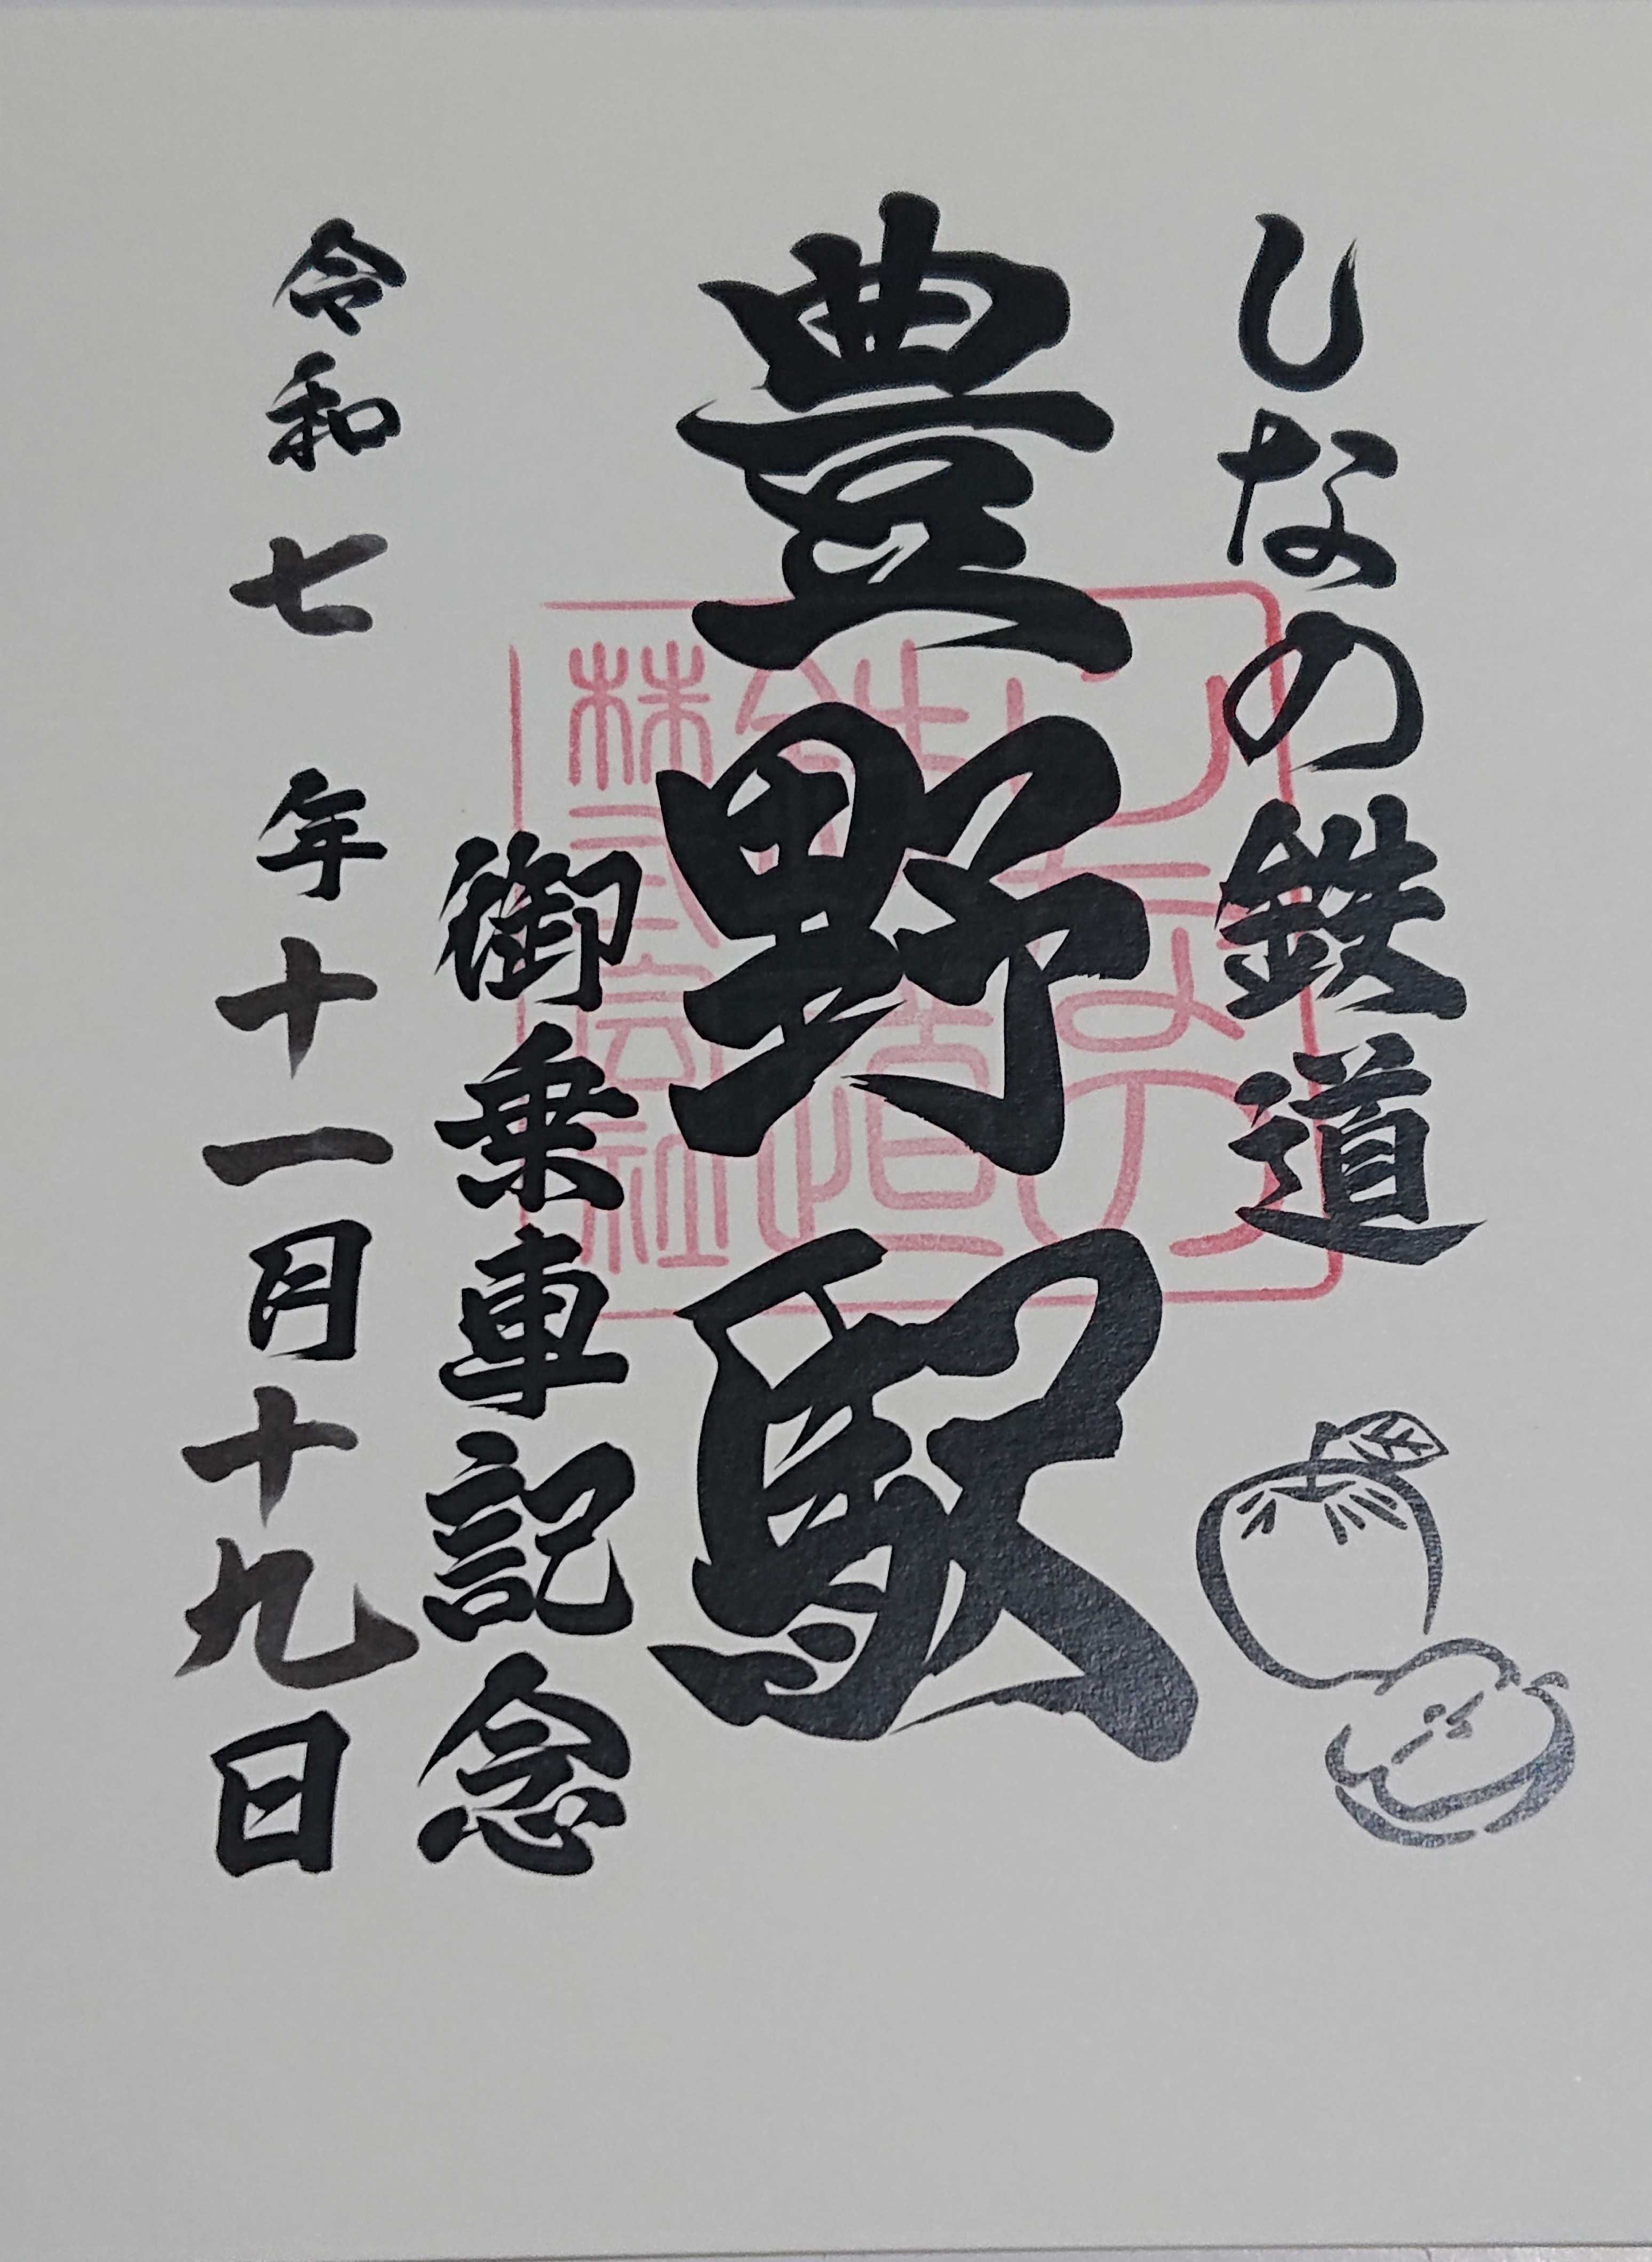 しなの鉄道
豊野駅
御乗車記念
令和七年十一月十九日
しなの
鉄道
株式会社